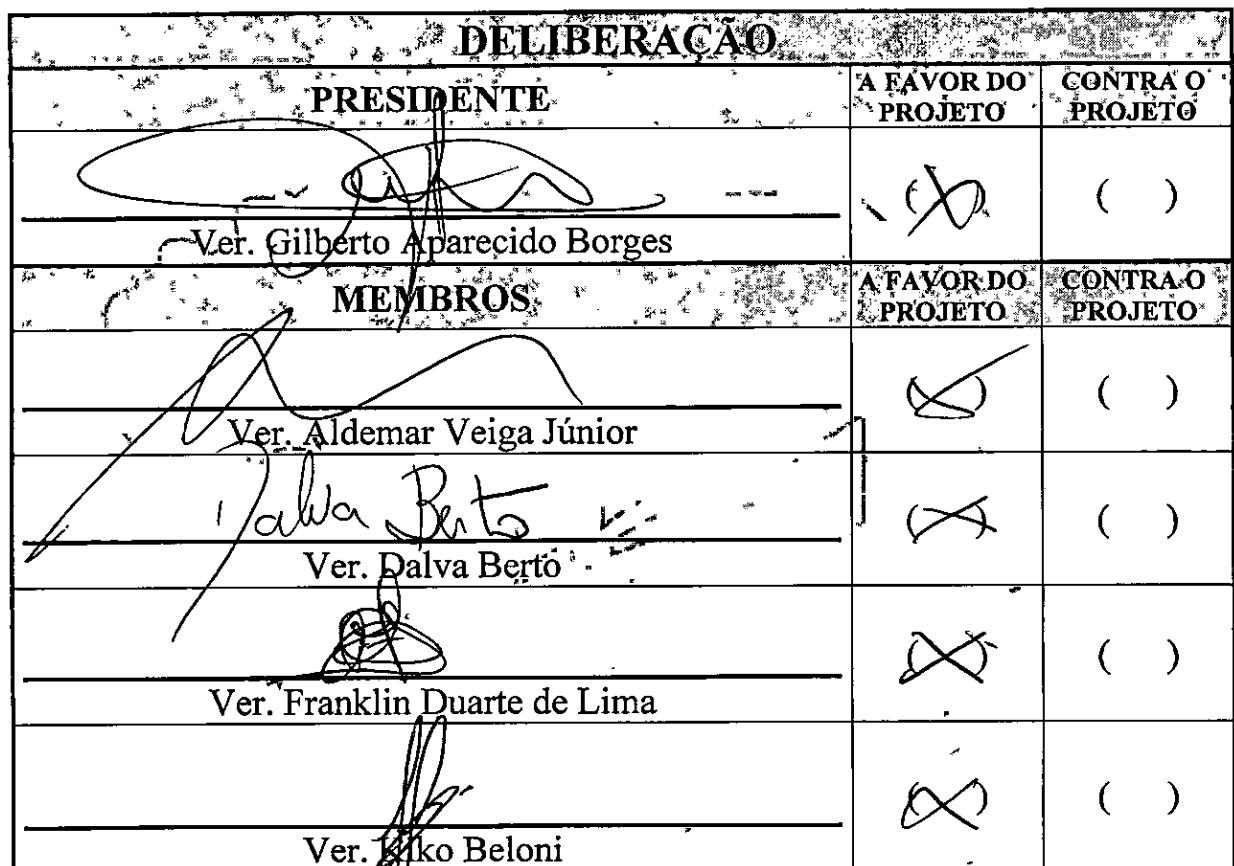 DELIBERAÇÃO
PRESIDENTE A FAVOR DO PROJETO CONTRA O PROJETO
(X) ( )
Ver. Gilberto Aparecido Borges
MEMBROS A FAVOR DO PROJETO CONTRA O PROJETO
(X) ( )
Ver. Aldemar Veiga Júnior
Dalva Berto (X) ( )
Ver. Dalva Berto
(X) ( )
Ver. Franklin Duarte de Lima
(X) ( )
Ver. Kiko Beloni